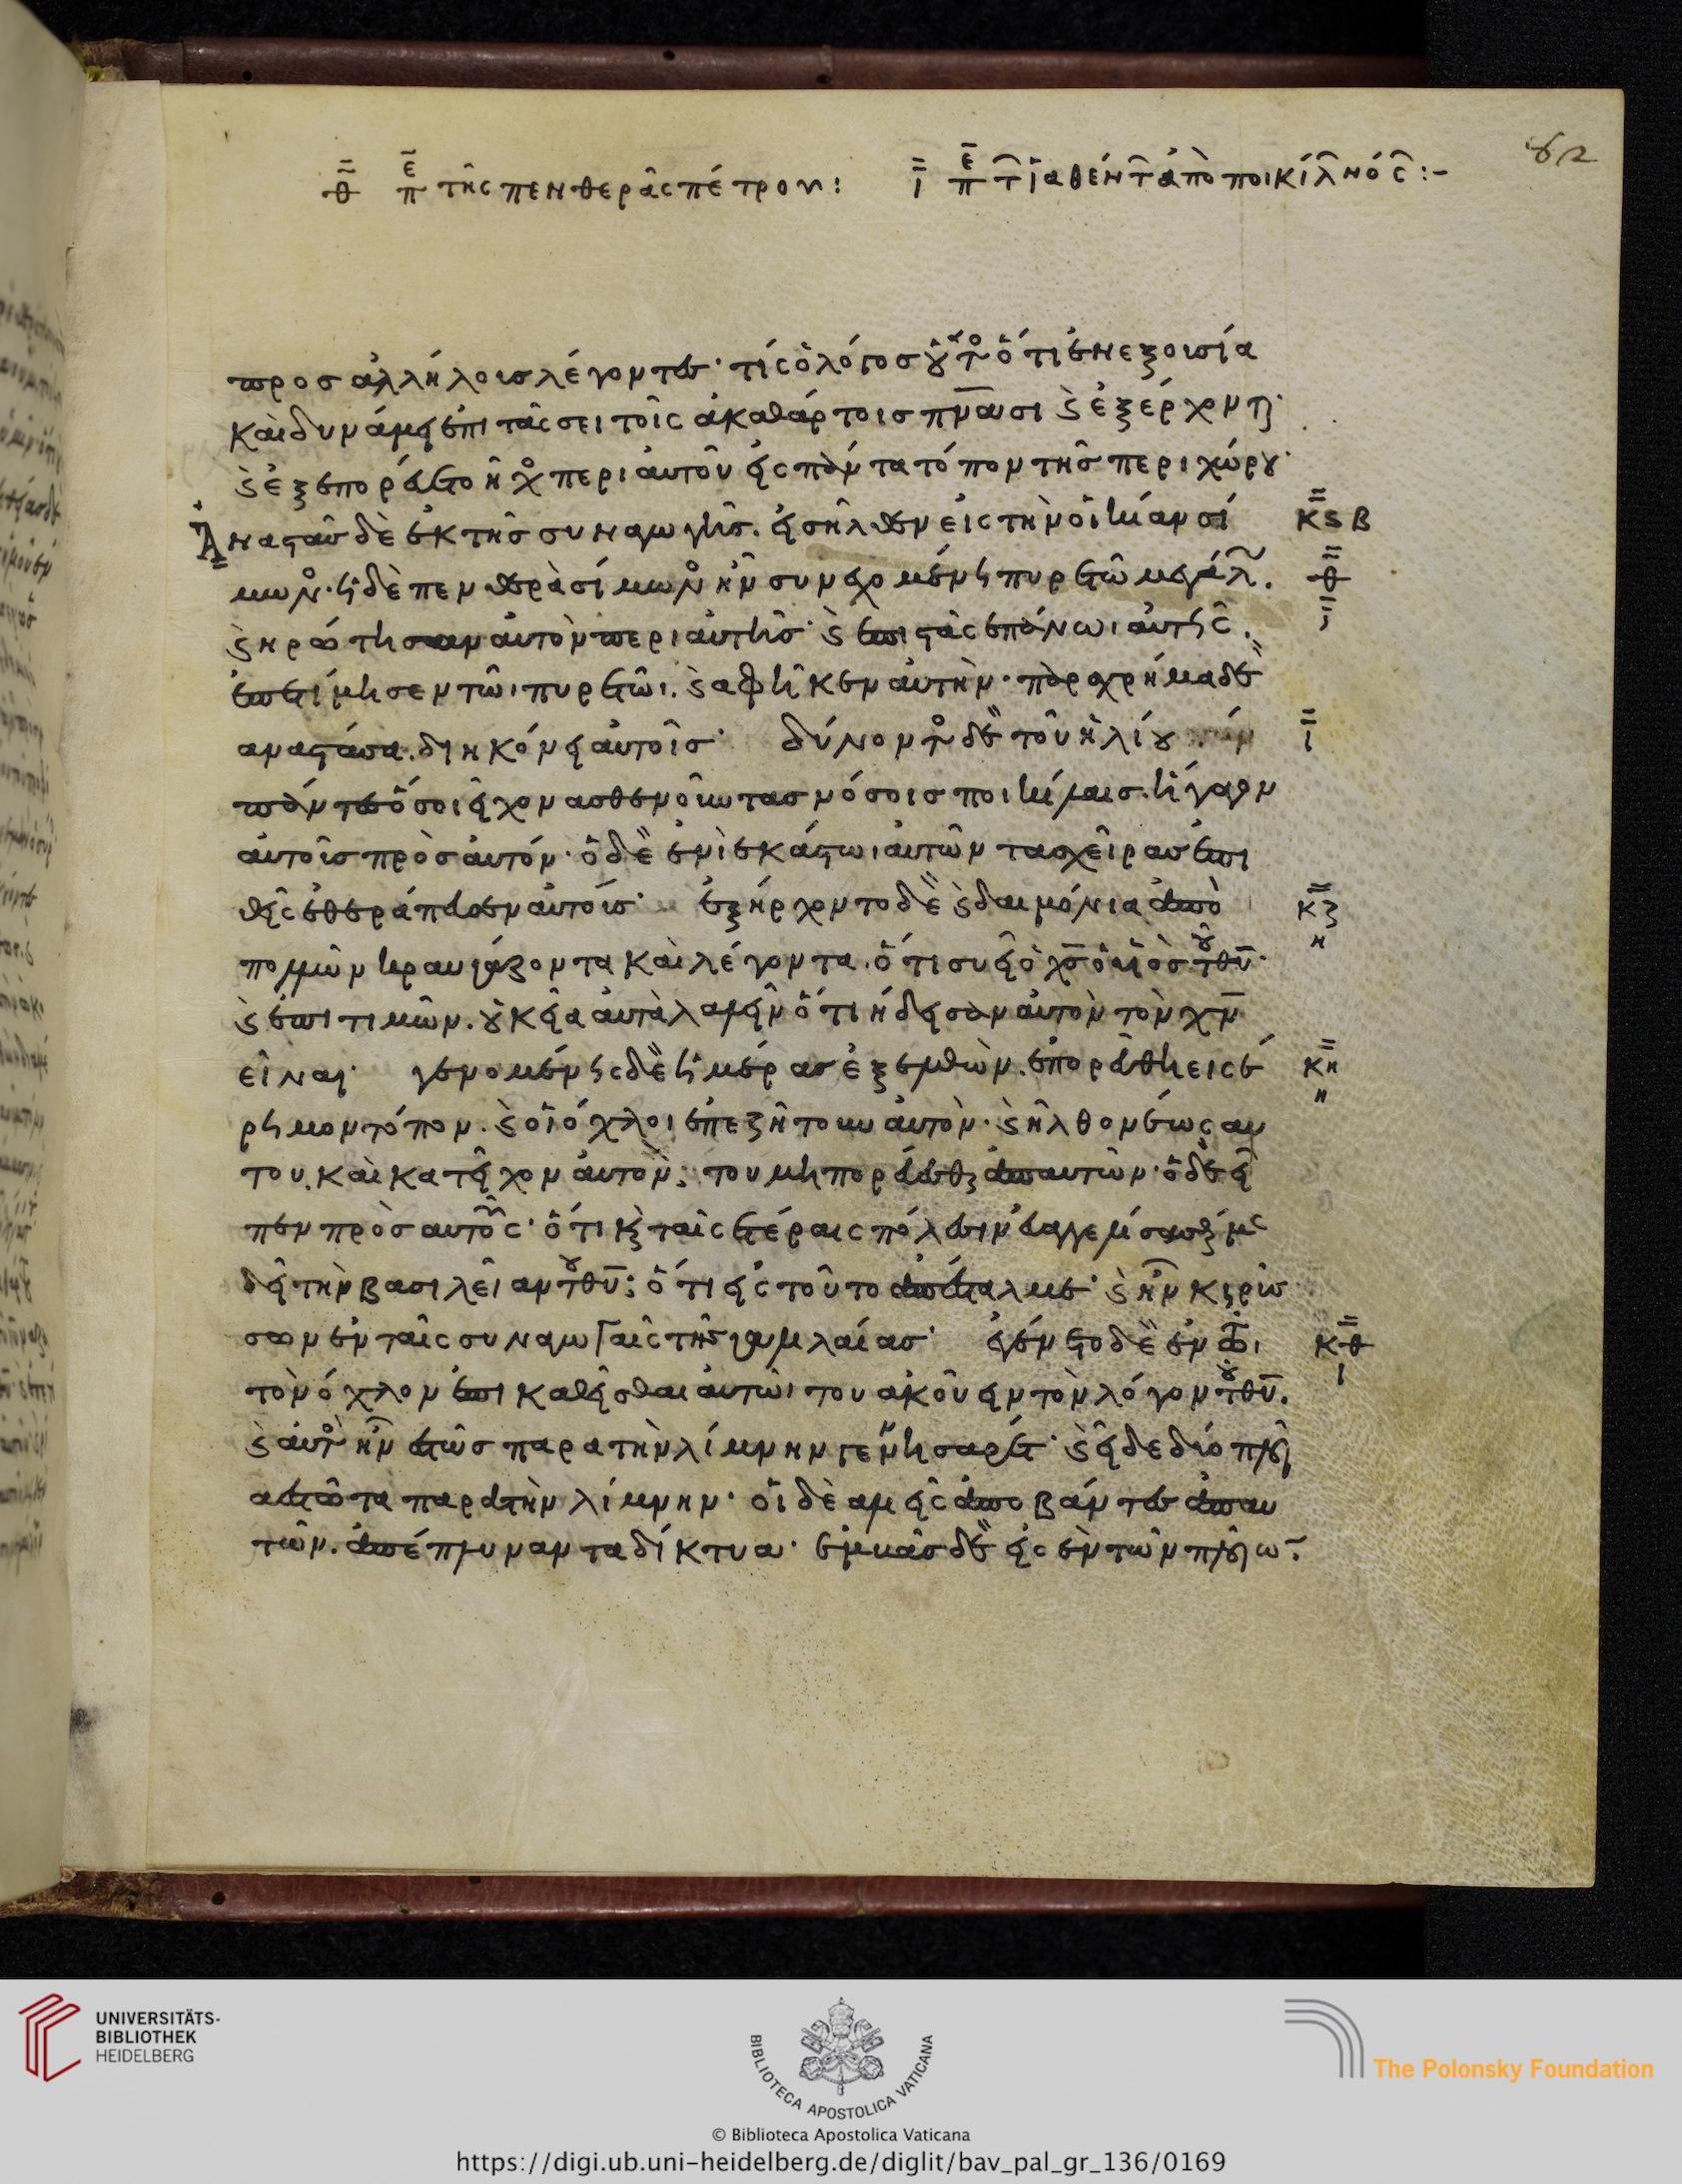 82
θ πε τῆς πενθερᾶς πέτρου: ι πε τ ἰαθέντ ἀπὸ ποικίλ νόσ :-
προσ ἀλλήλουσ λέγοντεσ· τίς ὁ λόγοσ οὗτοσ ὅτι ἐν ἐξουσία
καὶ δυνάμει ἐπιτάσσει τοῖς ἀκαθάρτοισ πν̅ασι ϗ ἐξέρχονται·
ϗ ἐξεπορεύετο ἦχοσ περι αὐτοῦ εἰς πάντα τόπον τῆσ περιχώρου·
Ἀναστὰσ δὲ ἐκ τῆσ συναγωγῆσ. εἰσῆλθεν εἰς τὴν οἰκίαν σί κϛ β
μωνοσ· ἡ δὲ πενθερὰ σίμωνοσ ἦν συνεχομένη πυρετῶ μεγάλ. θ
ϗ ἠρώτησαν αὐτὸν περι αὐτῆσ· ϗ ἐπιστὰς ἐπάνωι αὐτῆς. ι
ἐπετίμησεν τῶι πυρετῶι. ϗ ἀφῆκεν αὐτὴν· παραχρήμα δὲ
αναστάσα. διηκόνει αὐτοῖσ· δύνοντοσ δὲ τοῦ ἡλίου ι
πάντεσ ὅσοι εἶχον ασθενοῦντασ νόσοισ ποικίλαισ. ἤγαγον
αὐτοὺσ πρὸσ αὐτόν· ὁ δὲ ἑνὶ ἑκάστωι αὐτῶν τασ χεῖρασ ἐπι
θεὶς ἐθεράπευσεν αὐτούσ· ἐξήρχοντο δὲ ϗ δαιμόνια ἀπὸ κζ
πολλῶν κραυγάζοντα καὶ λέγοντα. ὅτι συ εἶ ὁ χσ̅ ὁ υἱὸσ τοῦ θυ̅· η
ϗ ἐπιτιμῶν. οὐκ εἴα αὐτὰ λαλεῖν ὅτι ἤδεισαν αὐτὸν τὸν χν̅
εἶναι· γενομένης δὲ ἡμέρασ ἐξελθὼν. ἐπορεύθη εισ έ κη
ρημον τόπον. ϗ οἱ όχλοι ἐπεζήτουν αὐτὸν· ϗ ἦλθον έως αυ η
του. καὶ κατεῖχον αὐτὸν; του μη πορεύεσθαι ἀπ αυτῶν· ὁ δὲ εἶ
πεν πρὸσ αυτοὺς· ὅτι ϗ ταῖς ετέραις πόλεσιν εὐαγγελίσασθαί με
δεῖ τὴν βασιλείαν τοῦ θυ̅: ὅτι εἰς τοῦτο ἀπέσταλμε· ϗ ἦν κηρύσ
σων ἐν ταῖς συναγωγαῖς τῆσ γαλιλαίασ· ἐγένετο δὲ ἐν τῶι κθ
τὸν όχλον ἐπικαθεῖσθαι αὐτῶι του ἀκούειν τὸν λόγον τοῦ θυ̅. ι
ϗ αὐτὸσ ἦν ἑστῶσ παρα τὴν λίμνην γεννησαρέτ· ϗ εἶδε δύο πλοῖ
α ἑστῶτα παρὰ τὴν λίμνην· οἱ δὲ αλιεῖς ἀποβάντεσ ἀπ αυ
τῶν. ἀπέπλυναν τα δίκτυα· ἐμβὰσ δὲ εἰς ἓν τῶν πλοίων
UNIVERSITÄTS-
BIBLIOTHEK
HEIDELBERG
BIBLIOTECA APOSTOLICA VATICANA
© Biblioteca Apostolica Vaticana
The Polonsky Foundation
https://digi.ub.uni-heidelberg.de/diglit/bav_pal_gr_136/0169